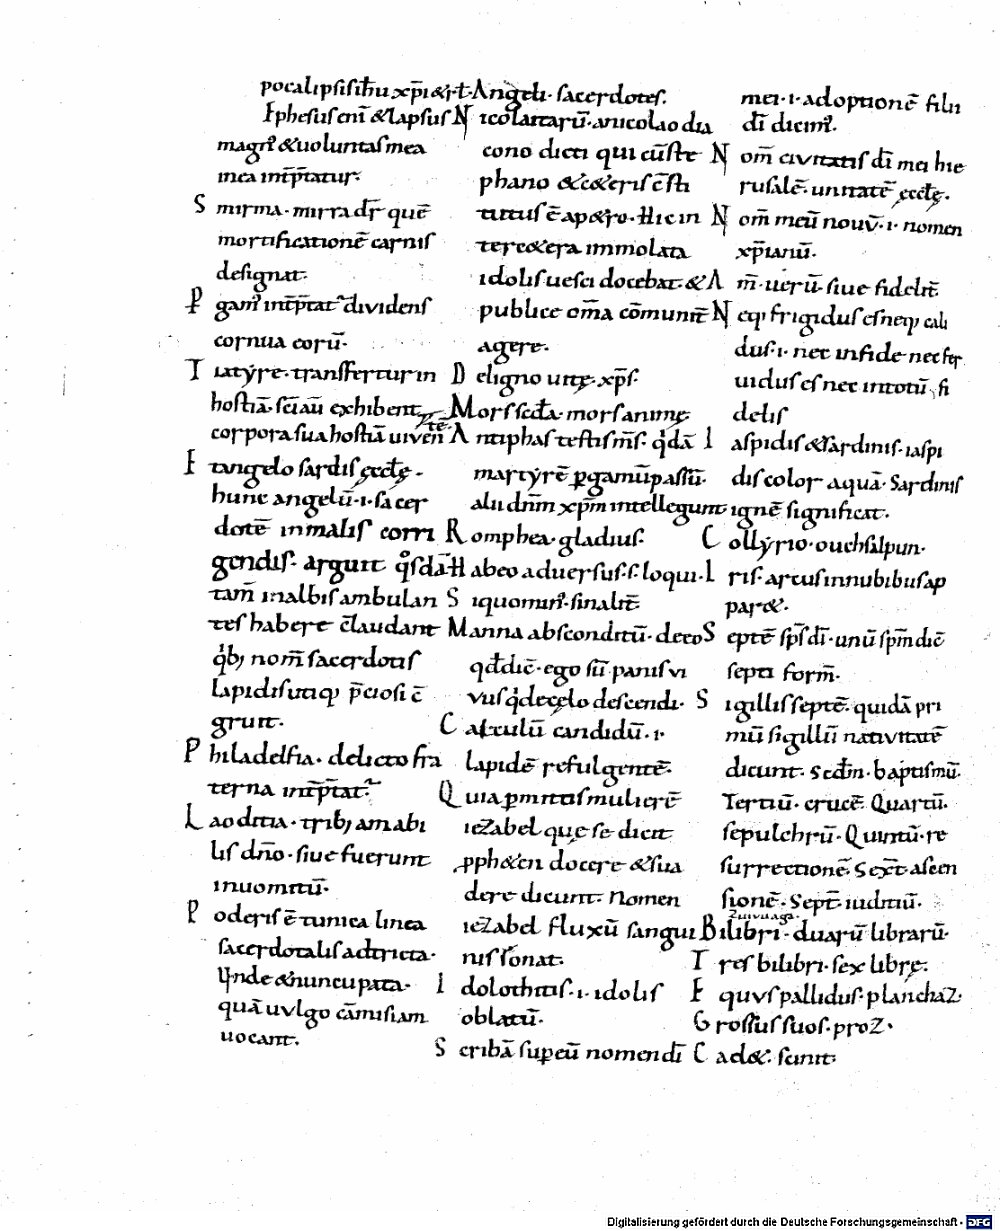 pocalipsis ih̄u xp̄i & rt̄.
Ephesus enī & lapsus
magn᷒ & uoluntas mea
mea int̄p̄tatur.
Smirna. mirra dr̄ quē
mortificationē carnis
designat.
P gam᷒ int̄p̄tat᷒ dividens
cornua eorū.
Tiatyre. transfertur in
hostiā. sc̄i aū exhibent
corpora sua hostiā uiventē
Et angelo sardis ęccłę.
hunc angelū .i. sacer
dotē in malis corri
gendis. arguit qͦsdā
tam̄ in albis ambulan
tes habere c̄laudant
qͥbꝫ nom̄ sacerdotis
lapidis utiqꝫ p̄ciosi c̄
gruit.
Philadelfia. delicto fra
terna int̄p̄tat᷒
Laoditia. tribꝫ amabi
lis dn̄o. sive fuerunt
in uomitū.
Poderis ē tunica linea
sacerdotalis adtricta.
Unde & nuncupata.
quā uulgo cāmisiam
uocant.
Angeli. sacerdotes.
Nicolaitarū. a nicolao dia
cono dicti qui cū ste
phano & c&eris c̄sti
tutus ē ap&ro. Hic in
ter c&era immolata
idolis uesci docebat. &
publice om̄a cōmunit̄
agere.
De ligno uitę. xp̄s.
Mors sc̄da. mors animę
Antiphas testis m̄s. qͥdā
martyrē ꝑgamū passū.
alii dn̄m xp̄m intellegunt
Romphea. gladius.
Habeo adversus .s. loqui.
Si quo min᷒. sin alit̄.
Manna absconditū. de eo
qđ dic̄. ego sū panis vi
vus qͥ de cęlo descendi.
Calculū candidū .i.
lapidē refulgentē.
Quia ꝑmittis mulierē
iezabel quę se dicit
pph&en docere & sua
dere dicunt. Nomen
iezabel fluxū sangui
nis sonat.
Idolothitis .i. idolis
oblatū.
Scribā supeū nomen dī
mei .i. adoptionē filii
dī dicim᷒.
Nom̄ civitatis dī mei hie
rusalē. unitatē ęccłę.
Nom̄ meū nouū .i. nomen
xp̄ianū.
Am̄. uerū. sive fidelit̄.
Neqꝫ frigidus es neqꝫ cali
dus .i. nec infide nec fer
uidus es nec in totū fi
delis
Iaspidis & sardinis. iaspi
dis color aquā. Sardinis
ignē significat.
Collyrio. ouchsalpun.
Iris. arcus in nubibus ap
par&.
Septē sp̄s dī. unū sp̄m dic̄
septi form̄.
Sigillis septē. quidā pri
mū sigillū nativitatē
dicunt. Scd̄m. baptismū.
Tertiū. crucē. Quartū.
sepulchrū. Quintū. re
surrectionē. Sext̄. ascen
sionē. Sept̄. iuditiū.
zuivuaga.
Bilibri. duarū librarū.
Tres bilibri. sex librę.
Equus pallidus. planchaz.
Grossus suos. proz.
Cad&. sunt.
Digitalisierung gefördert durch die Deutsche Forschungsgemeinschaft - DFG